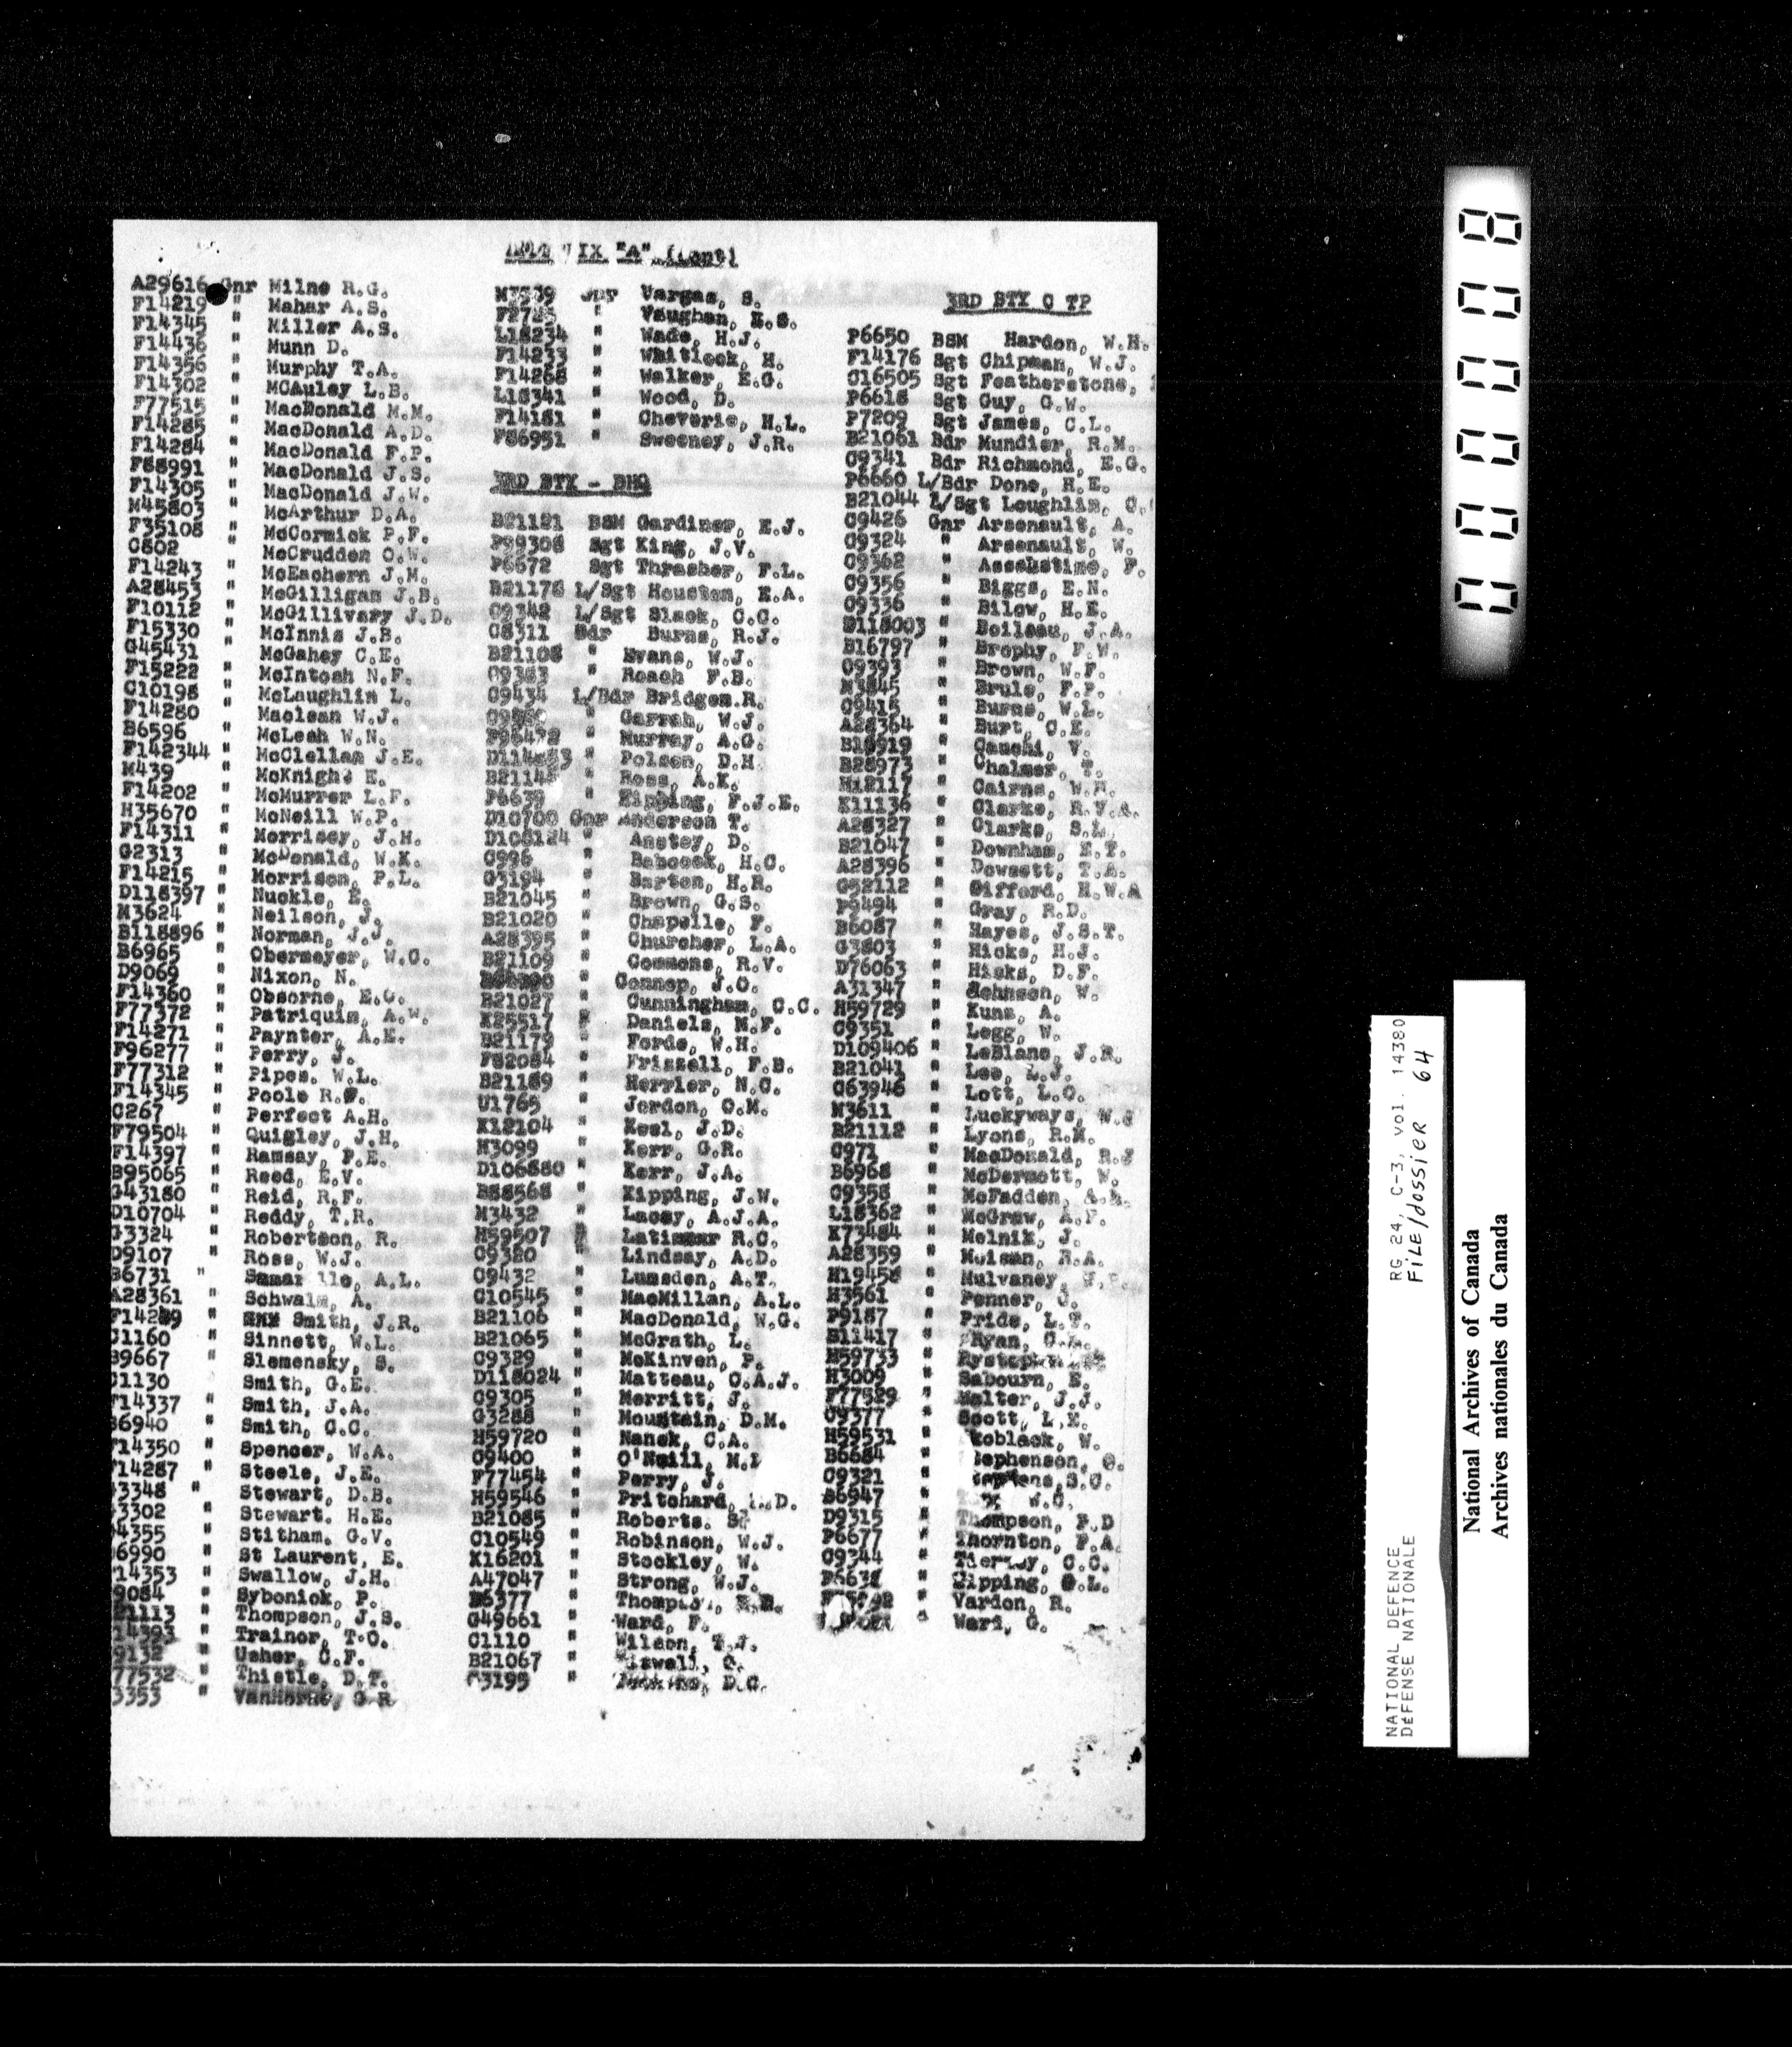 "A" (Cont)
A29616 Gnr Milne R.G.
F14219 " Mahar A.S.
F14345 " Miller A.S.
F14436 " Munn D.
F14356 " Murphy T.A.
F14302 " MCAuley L.B.
F77515 " MacDonald M.M.
F14285 " MacDonald A.D.
F14284 " MacDonald F.P.
F88991 " MacDonald J.S.
F14305 " MacDonald J.W.
M45803 " McArthur D.A.
F35108 " McCormick P.F.
C802 " McCrudden O.W.
F14243 " McEachern J.M.
A28453 " McGilligan J.B.
F10112 " McGillivary J.D.
F15330 " McInnis J.B.
G45431 " McGahey C.E.
F15222 " McIntosh N.F.
C10198 " McLaughlin L.
F14280 " Maclean W.J.
B6596 " McLeah W.N.
F142344 " McClellan J.E.
M439 " McKnight E.
F14202 " McMurrer L.F.
H35670 " McNeill W.P.
F14311 " Morrisey, J.H.
G2313 " McDonald, W.K.
F14215 " Morrison, P.L.
D118397 " Nuckle, E.
M3624 " Neilson, J.
B118896 " Norman, J.J.
B6965 " Obermeyer, W.C.
D9069 " Nixon, N.
F14360 " Obsorne, E.G.
F77372 " Patriquin, A.W.
F14271 " Paynter, A.E.
F96277 " Perry, J.
F77312 " Pipes. W.L.
F14345 " Poole R.F.
C267 " Perfect A.H.
F79504 " Quigley, J.H.
F14397 " Ramsay, P.E.
B95065 " Reed, E.V.
G43180 " Reid, R.F.
D10704 " Reddy, T.R.
G3324 " Robertson, R.
D9107 " Ross, W.J.
B6731 " A.L.
A28361 " Schwalm, A.
F14289 " Smith, J.R.
C1160 " Sinnett, W.L.
B9667 " Slemensky, S.
C1130 " Smith, G.E.
F14337 " Smith, J.A.
B6940 " Smith, C.C.
F14350 " Spencer, W.A.
F14287 " Steele, J.E.
3348 " Stewart, D.B.
3302 " Stewart. H.E.
4355 " Stitham. G.V.
6990 " St Laurent, E.
14353 " Swallow, J.H.
9084 " Sybonick, P.
21113 " Thompson, J.S.
14393 " Trainor, T.C.
9132 " Usher, C.F.
77532 " Thistle, D.T.
3353 " VanHorne, G R
M3539 Gnr Vargas, S.
" Vaughan, E.S.
L18234 " Wade, H.J.
F14233 " Whitlock, H.
F14268 " Walker, E.G.
L18341 " Wood, D.
F14181 " Cheverie, H.L.
F86951 " Sweeney, J.R.
3RD BTY - BHQ
B21121 BSM Gardiner, E.J.
P99308 Sgt King, J.V.
P6672 Sgt Thrasher, F.L.
B21178 L/Sgt Houston, E.A.
C9342 L/Sgt Slack, C.C.
C8311 Bdr Burns, R.J.
B21108 " Evans, W.J.
C9383 " Roach F.B.
C9434 L/Bdr Bridges.R.
" Garrah, W.J.
" Murray, A.G.
" Polson, D.H.
" Ross, A.K.
P6639 " Zipping, F.J.E.
D10700 Gnr Anderson T.
D106124 " Anstey, D.
C996 " Babcock, H.C.
G3194 " Barton, H.R.
B21045 " Brown, G.S.
B21020 " Chapelle, F.
A28395 " Churcher, L.A.
B21109 " Commons, R.V.
Connop, J.C.
B21027 " Cunningham, C.C.
K25517 " Daniels, M.F.
B21179 " Forde, W.H.
F82084 " Frizzell, F.B.
B21189 " Herrier, N.C.
U1765 " Jordon, C.M.
K12104 " Keel, J.D.
H3099 " Kerr, G.R.
D106880 " Kerr, J.A.
B88568 " Kipping, J.W.
M3432 " Lacey, A.J.A.
H59507 " Latimer R.C.
C9320 " Lindsay, A.D.
C9432 " Lumsden, A.T.
C10545 " MacMillan, A.L.
B21106 " MacDonald, W.G.
B21065 " McGrath, L.
C9329 " McKinven, P.
D118024 " Matteau, O.A.J.
C9305 " Merritt, J.
G3288 " Mountain, D.M.
H59720 " Nanek, C.A.
C9400 " O'Neill, M.
F77454 " Perry, J.
H59546 " Pritchard, D.
B21085 " Roberts.
C10549 " Robinson, W.J.
K16201 " Stockley, W.
A47047 " Strong, W.J.
B6377 "
G49661 " Ward, F.
C1110 " Wilson, T.J.
B21067 "
3195 " D.C.
3RD BTY C TP
P6650 BSM Harden, W.H.
F14176 Sgt Chipman, W.J.
C16505 Sgt Featherstone,
P6618 Sgt Guy, G.W.
P7209 Sgt James, C.L.
B21061 Bdr Mundier, R.M.
C9341 Bdr Richmond, E.G.
P6660 L/Bdr Done, H.E.
B21044 L/Sgt Loughlin,
C9426 Gnr Arsenault, A.
C9324 " Arsenault, W.
C9362 " Asselstine, F.
C9356 " Biggs, E.N.
C9336 " Bilow, H.E.
D118003 " Boileau, J.A.
B16797 " Brophy, F.W.
C9393 " Brown, W.F.
M3845 " Brule, F.P.
C9415 " Burns, W.L.
A28364 " Burt, C.E.
B18919 " Cauchi, V.
B28973 " Chalmer, T.
H12117 " Cairns, W.H.
K11136 " Clarke, R.V.A.
A28327 " Clarke, S.L.
B21047 " Downham, E.T.
A28396 " Dowsett, T.A.
G52112 " Gifford, H.W.A
P9494 " Gray, R.D.
B6087 " Hayes, J.S.T.
G3803 " Hicks, H.J.
D76063 " Hicks, D.F.
A31347 " Johnson, W.
H59729 " Kuns, A.
C9351 " Legg, W.
D109406 " LeBlanc, J.R.
B21041 " Lee, L.J.
C63946 " Lott, L.O.
M3611 " Luckyways,
B21112 " Lyons, R.M.
C971 " MacDonald,
B6968 " McDermott, W.
C9358 " McFadden,
L18362 " McGraw, A.F.
K73484 " Melnik, J.
A28359 " Moisan, R.A.
H19458 " Mulvaney
H3561 " Penner,
P9187 " Pride,
B11417 " Ryan,
H59733 "
H3009 " Sabourn, E.
F77529 " Malter, J.J.
C9377 " Scott, L.E.
H59531 " W.
B6684 "
C9321 " S.C.
B6947 " W.G.
D9315 " Thompson, F.D
P6677 " Thornton, F.A.
C9344 " C.C.
" Zipping,
Vardon, R.
" Ward, G.
00008
RG 24, C-3, vol. 14380
FILE/dossier 64
NATIONAL DEFENCE
DÉFENSE NATIONALE
National Archives of Canada
Archives nationales du Canada